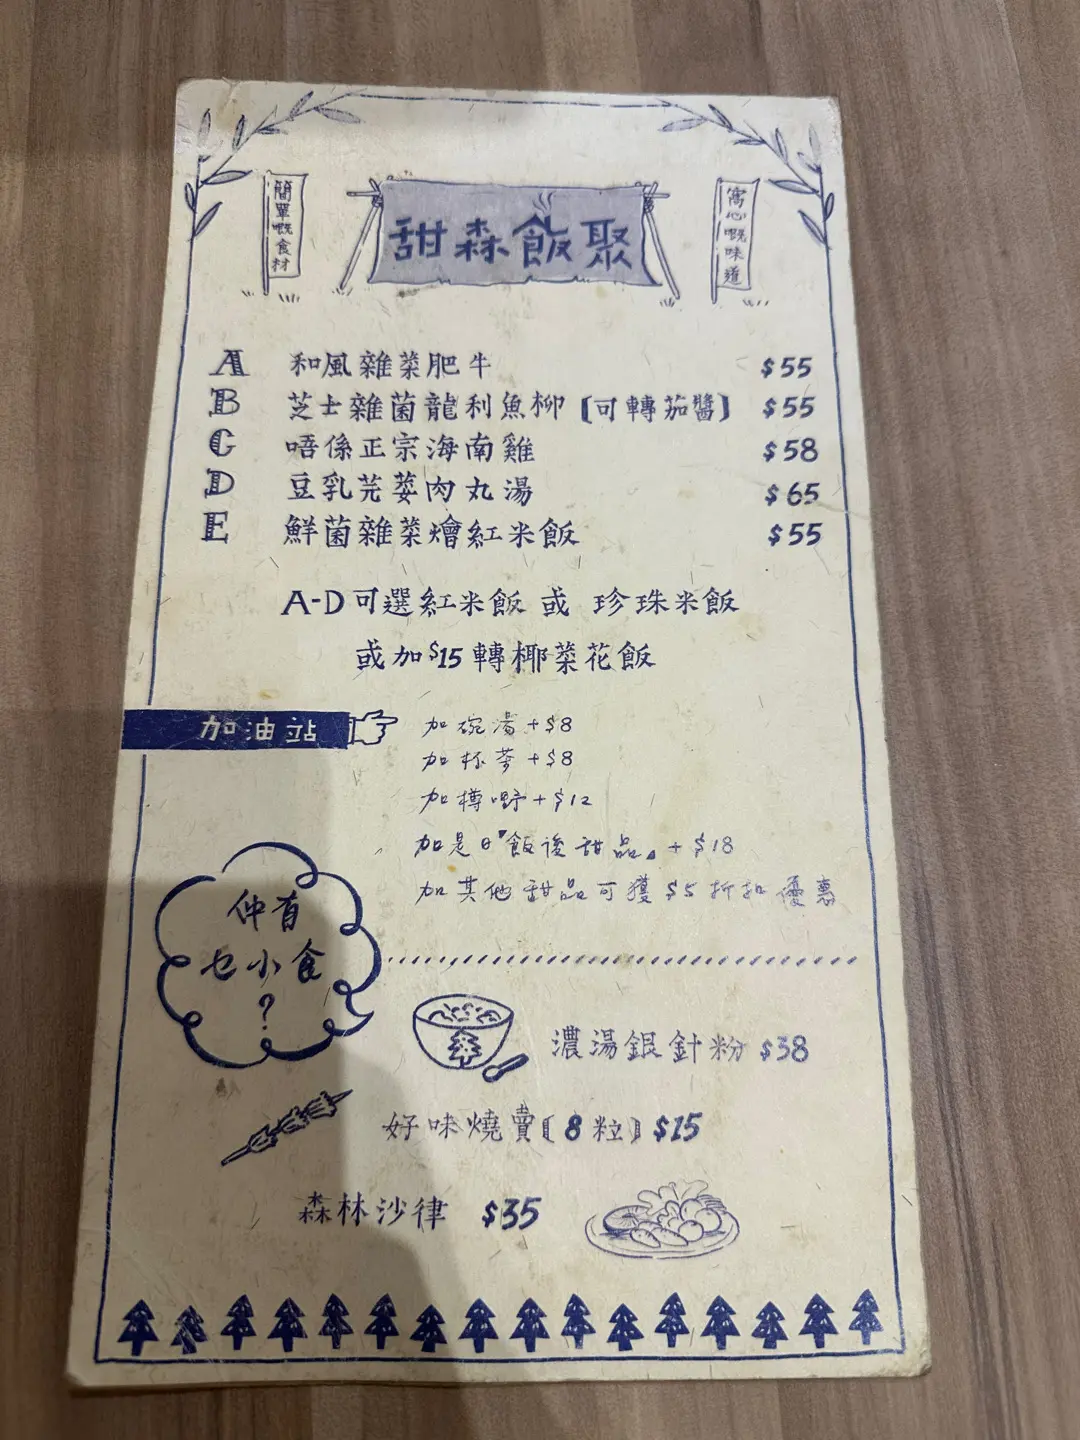 簡單嘅食材
甜森飯聚
窩心嘅味道
A 和風雜菜肥牛 $55
B 芝士雜菌龍利魚柳〔可轉茄醬〕 $55
C 唔係正宗海南雞 $58
D 豆乳芫荽肉丸湯 $65
E 鮮菌雜菜燴紅米飯 $55
A-D可選紅米飯 或 珍珠米飯
或加$15轉椰菜花飯
加油站
加碗湯+$8
加杯茶+$8
加樽嘢+$12
加是日「飯後甜品」+$18
加其他甜品可獲$5折扣優惠
仲有
乜小食
?
濃湯銀針粉 $38
好味燒賣〔8粒〕$15
森林沙律 $35